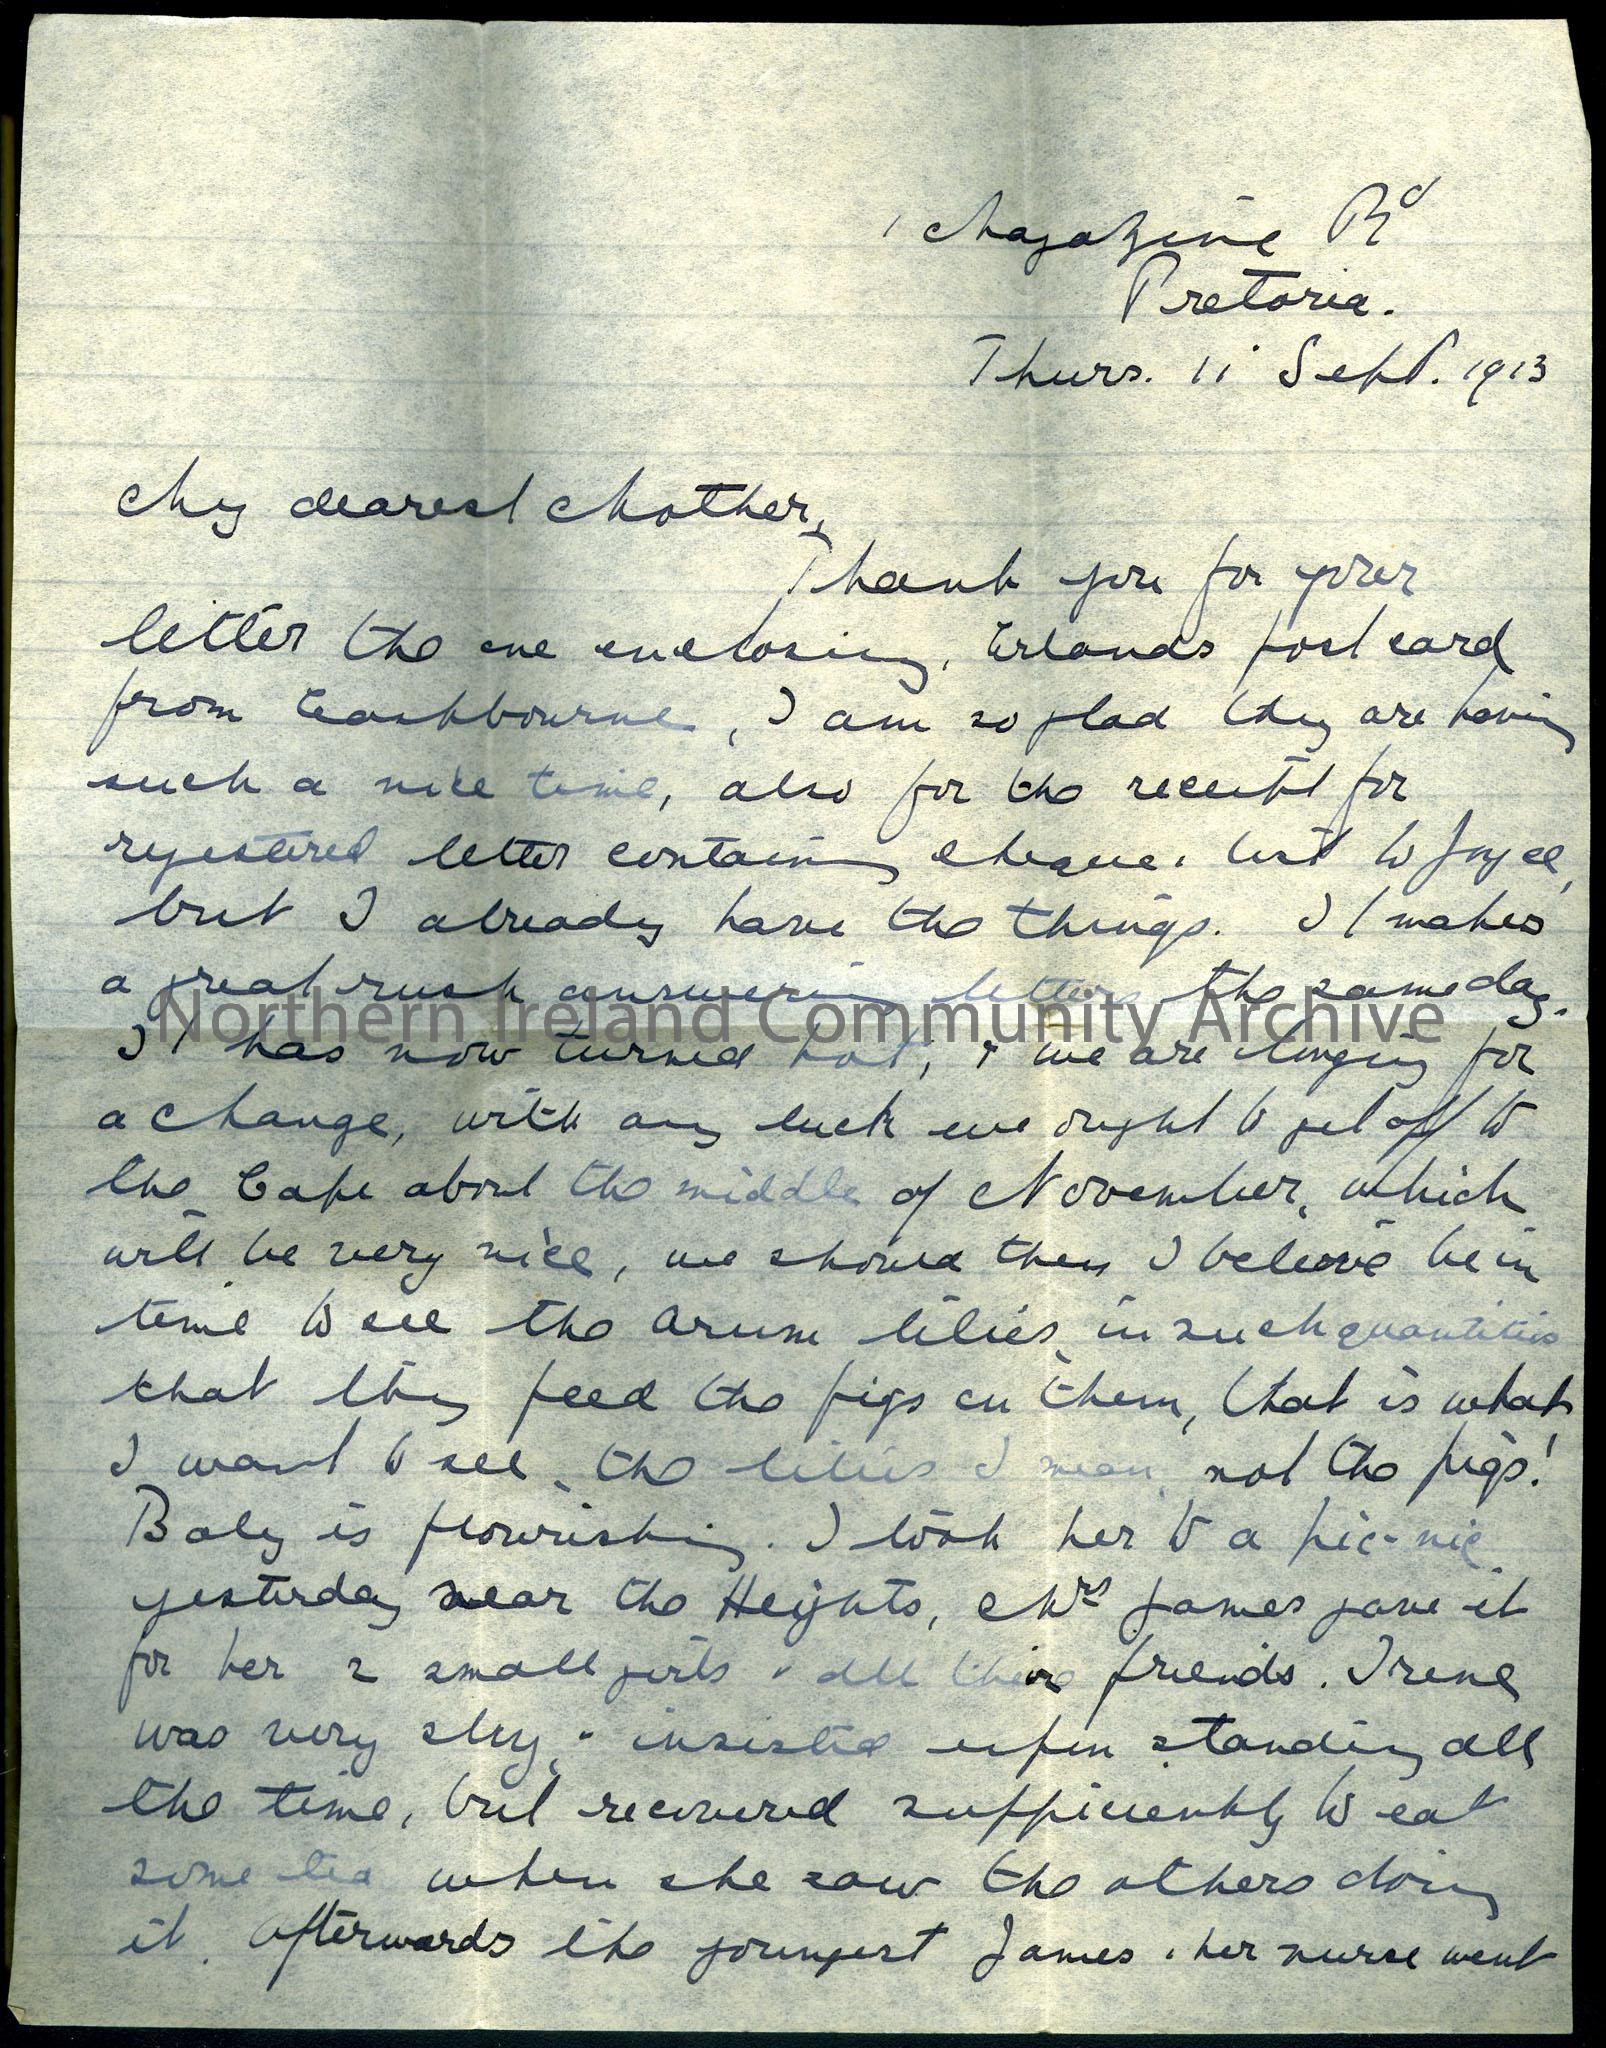 1 Magazine Rd
Pretoria.
Thurs. 11 Sept. 1913
My dearest Mother,
Thank you for your
letter the one enclosing, Erlands post card
from Eastbourne, I am so glad they are having
such a nice time, also for the receipt for
registered letter containing cheque & list to Joyce,
but I already have the things. It makes
a great rush answering letters the same day.
Northern Ireland Community Archive
It has now turned hot, & we are longing for
a change, with any luck we ought to get off to
the Cape about the middle of November, which
will be very nice, we should then I believe be in
time to see the arum lilies in such quantities
that they feed the pigs on them, that is what
I want to see, the lilies I mean, not the pigs!
Baby is flourishing. I took her to a pic-nic
yesterday near the Heights, Mrs James gave it
for her 2 small girls & all their friends. Irene
was very shy, & insisted upon standing all
the time, but recovered sufficiently to eat
some tea when she saw the others doing
it. Afterwards the youngest James & her nurse went